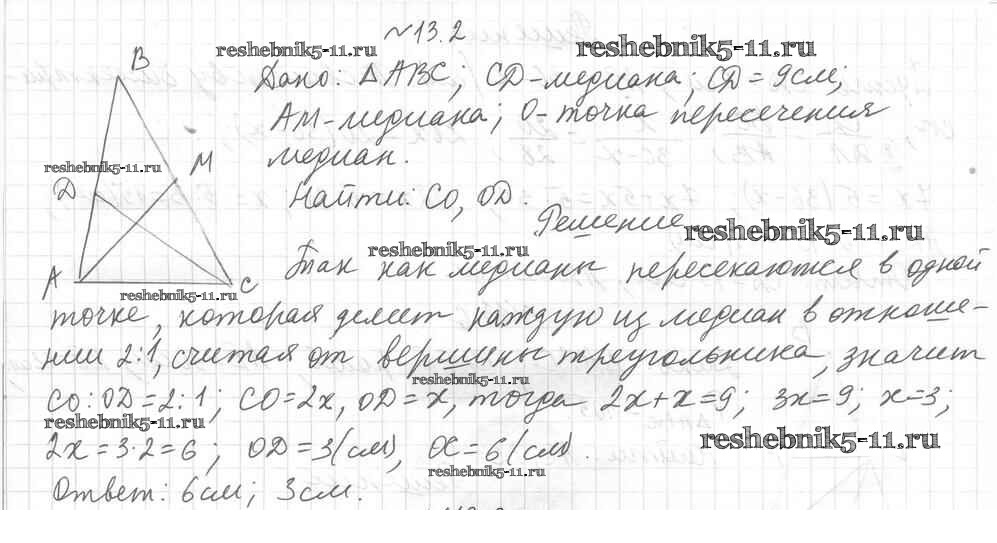 №13.2
reshebnik5-11.ru
reshebnik5-11.ru
B
Дано: △ABC; CD-медиана; CD=9см;
AM-медиана; O-точка пересечения
медиан.
reshebnik5-11.ru
M
D
Найти: CO, OD.
Решение
reshebnik5-11.ru
reshebnik5-11.ru
A
C
reshebnik5-11.ru
Так как медианы пересекаются в одной
точке, которая делит каждую из медиан в отноше-
нии 2:1, считая от вершины треугольника, значит
reshebnik5-11.ru
CO:OD=2:1; CO=2x, OD=x, тогда 2x+x=9; 3x=9; x=3;
reshebnik5-11.ru
reshebnik5-11.ru
2x=3·2=6; OD=3(см), OC=6(см).
reshebnik5-11.ru
Ответ: 6см; 3см.